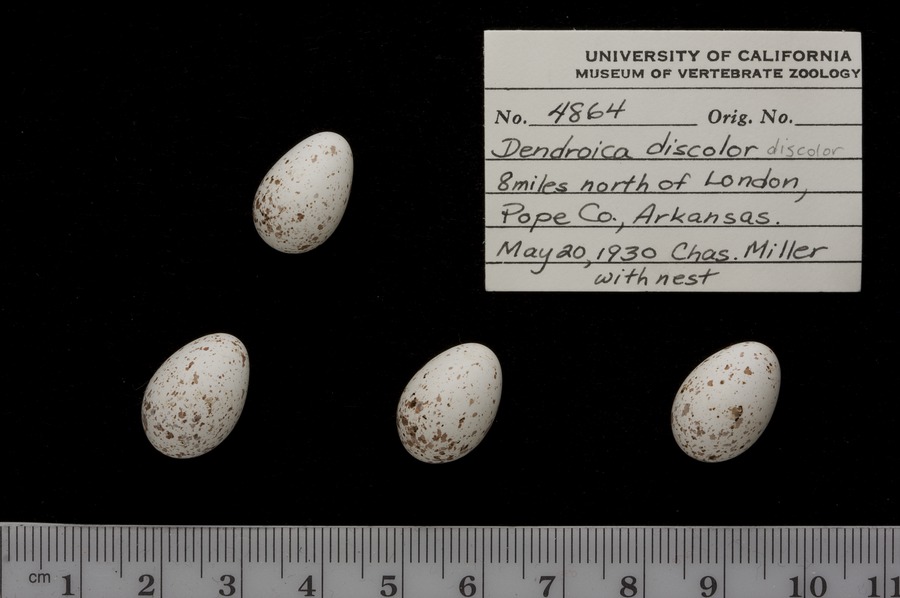 UNIVERSITY OF CALIFORNIA
MUSEUM OF VERTEBRATE ZOOLOGY
No. 4864 Orig. No.
Dendroica discolor discolor
8miles north of London,
Pope Co., Arkansas.
May 20, 1930 Chas. Miller
with nest
cm 1 2 3 4 5 6 7 8 9 10 11